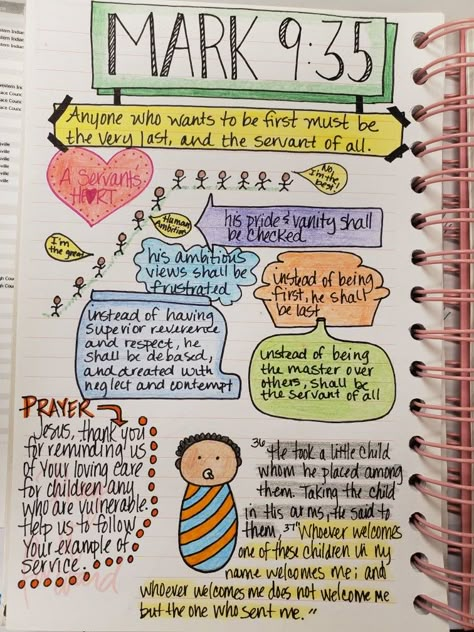 MARK 9:35
Anyone who wants to be first must be
the very last, and the servant of all.
A Servant's
HEART
No,
I'm the
best!
Human
Ambition
I'm
the great
his pride & vanity shall
be checked
his ambitious
views shall be
frustrated
instead of being
first, he shall
be last
instead of having
superior reverence
and respect, he
shall be debased,
and dreated with
neglect and contempt
instead of being
the master over
others, shall be
the servant of all
PRAYER
Jesus, thank you
for reminding us
of your loving care
for children any
who are vulnerable.
Help us to follow
Your example of
service.
36 He took a little child
whom he placed among
them. Taking the child
in His arms, He said to
them, 37 "Whoever welcomes
one of these children in my
name welcomes me; and
whoever welcomes me does not welcome me
but the one who sent me."